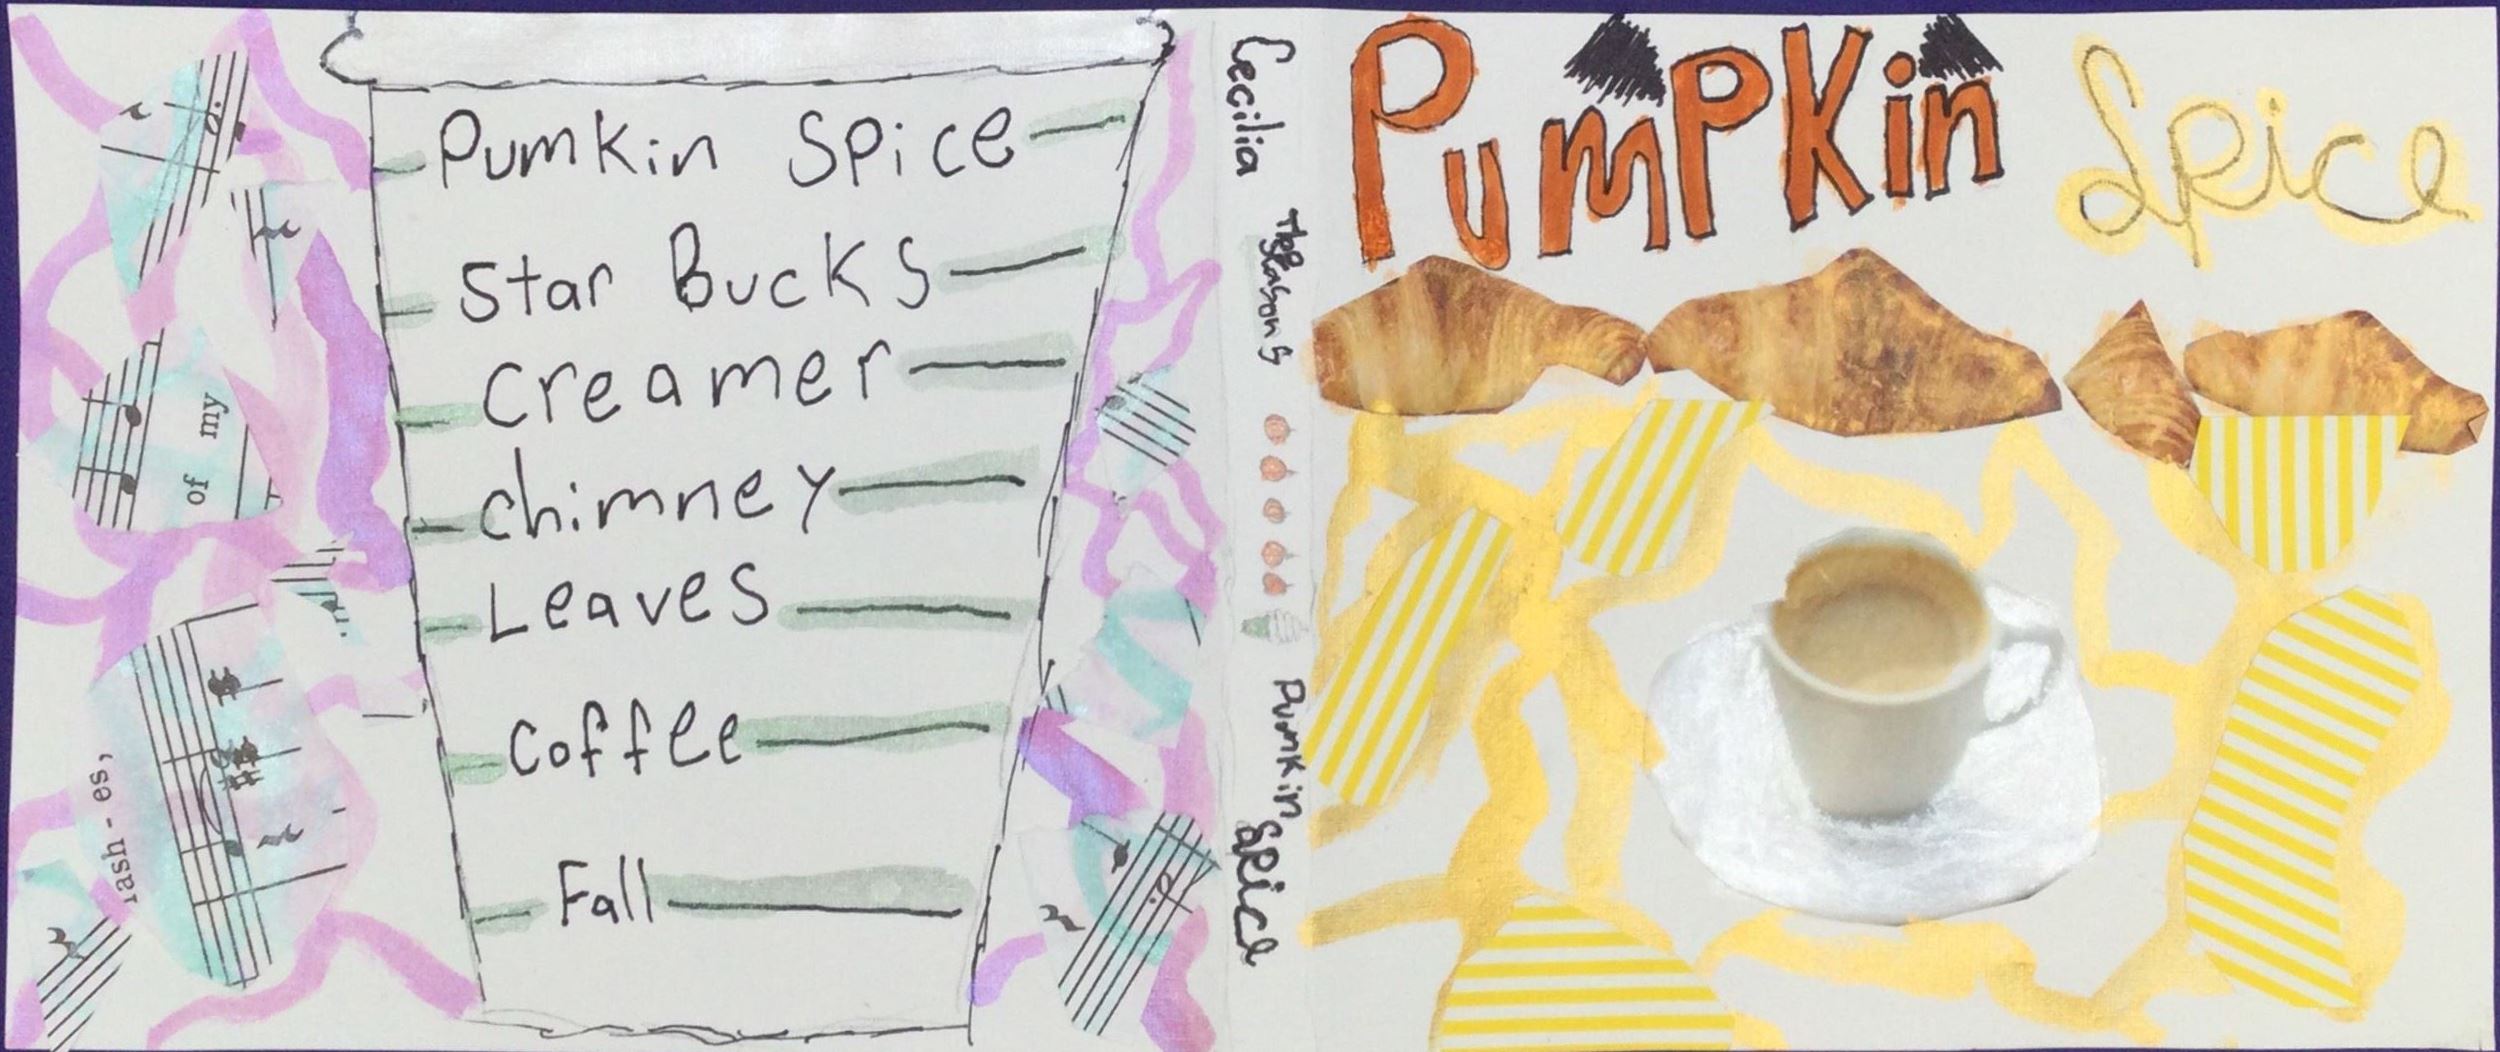 Pumkin Spice
Star Bucks
Creamer
chimney
Leaves
Coffee
Fall
of my
lash - es,
Cecilia
The Seasons
Pumkin Spice
PumPKin Spice